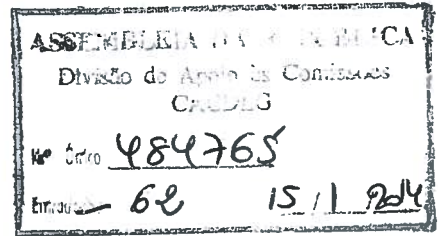 ASSEMBLEIA DA REPÚBLICA
Divisão de Apoio às Comissões
CACDLG
Nº Único 484765
62 15/1/2014